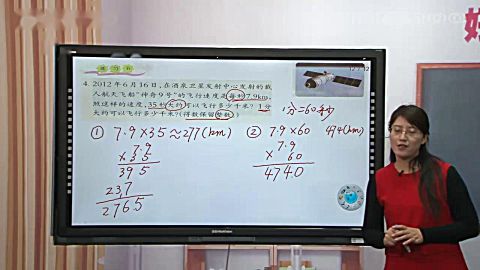 练习五
12 / 12
4. 2012年6月16日,在酒泉卫星发射中心发射的载
人航天飞船“神舟9号”的飞行速度是每秒7.9km。
照这样的速度,35秒大约可以飞行多少千米?1分
大约可以飞行多少千米?(得数保留整数)
1分=60秒
① 7.9×35≈277(km)
7.9
×3.5
395
23.7
276.5
② 7.9×60 474(km)
7.9
× 60
474.0